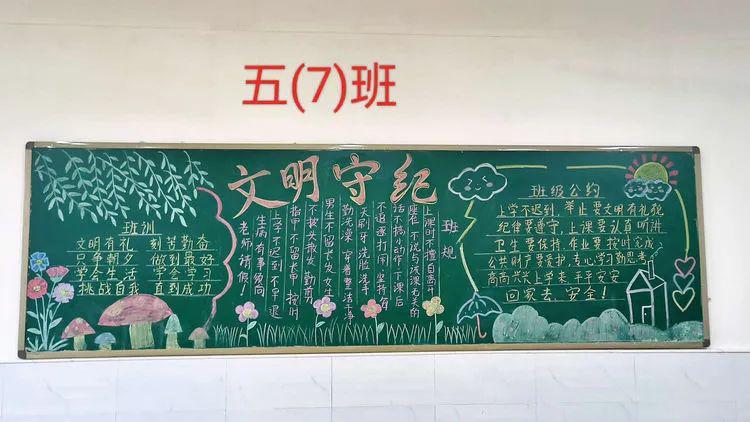 五(7)班
文明守纪
班训
文明有礼 刻苦勤奋
只争朝夕 做到最好
学会生活 学会学习
挑战自我 直到成功
班规
上课时不擅自离开
座位 不说与该课无关的
话 不搞小动作 下课后
不追逐打闹 坚持每
天刷牙 洗脸 洗手
勤洗澡 穿着整洁
男生不留长发 女生
不披头散发 勤剪
指甲 不留长甲 按时
上学 不迟到 不早退
生病有事须向
老师请假!
班级公约
上学不迟到,举止要文明有礼貌
纪律要遵守,上课要认真听讲
卫生要保持,作业要按时完成
公共财产要爱护,专心学习勤思考
高高兴兴上学来 平平安安
回家去,安全!